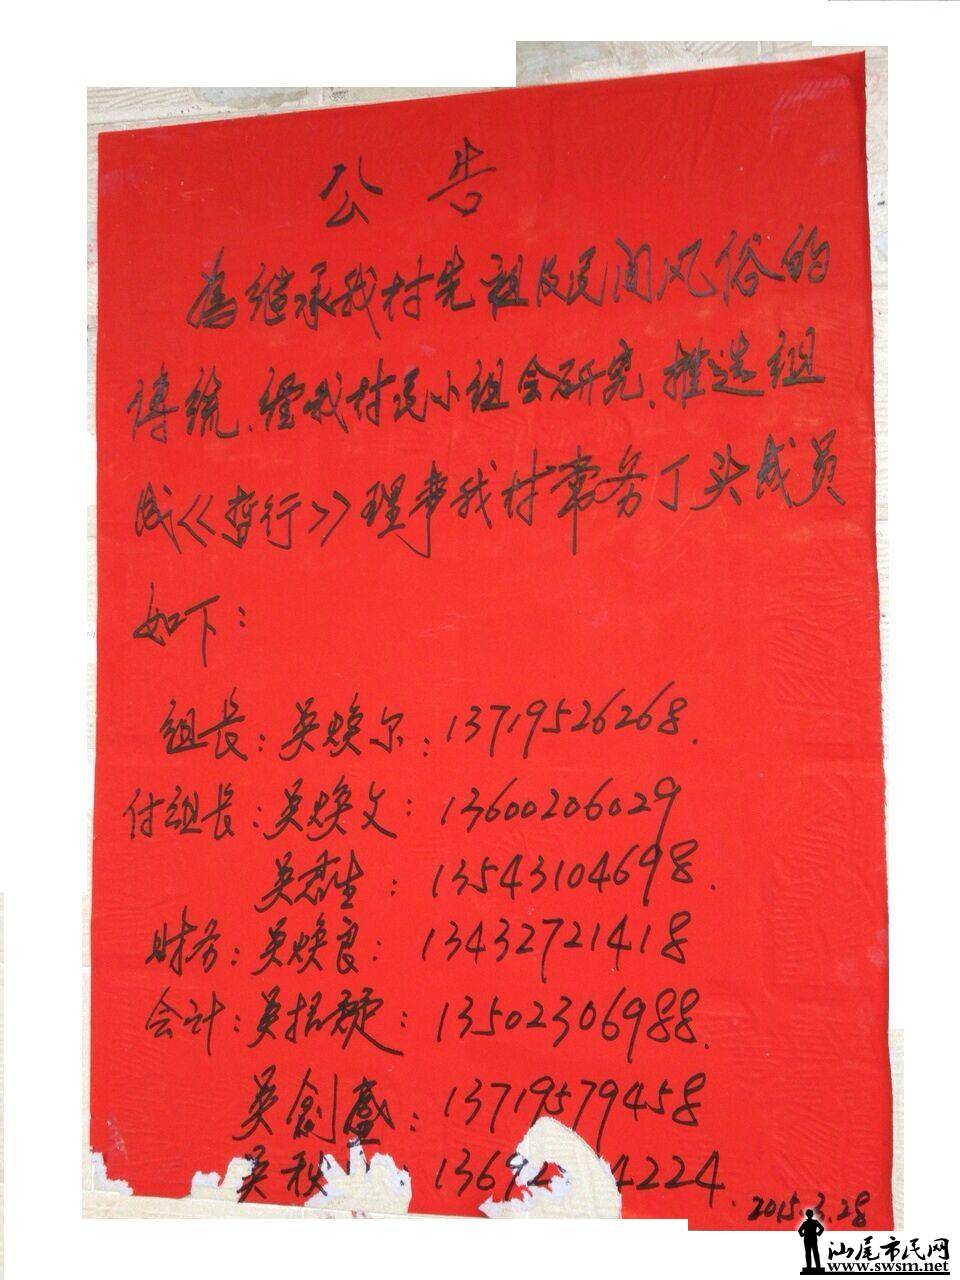 公告
為继承我村先祖及民间风俗的
傅统、经我村民小组会研究、推选组
成《《暂行》》理事我村常务丁头成员
如下：
组长：吴焕尔：13719526268.
付组长：吴焕文：13600206029
吴君生：13543104698.
财务：吴焕良：13432721418
会计：吴招：13502306988.
吴創盛：13719579458
吴秋：1369 4224.
2015.3.28
汕尾市民网
www.swsm.net